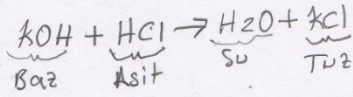 KOH + HCl → H2O + KCl
Baz Asit Su Tuz